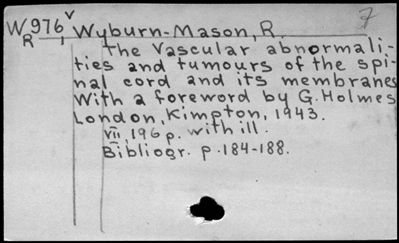 7
W976v Wyburn-Mason, R.
R 1
The Vascular abnormali-
ties and tumours of the spi-
nal cord and its membranes
With a foreword by G. Holmes
London, Kimpton, 1943.
VII, 196 p. with ill.
Bibliogr. p. 184-188.